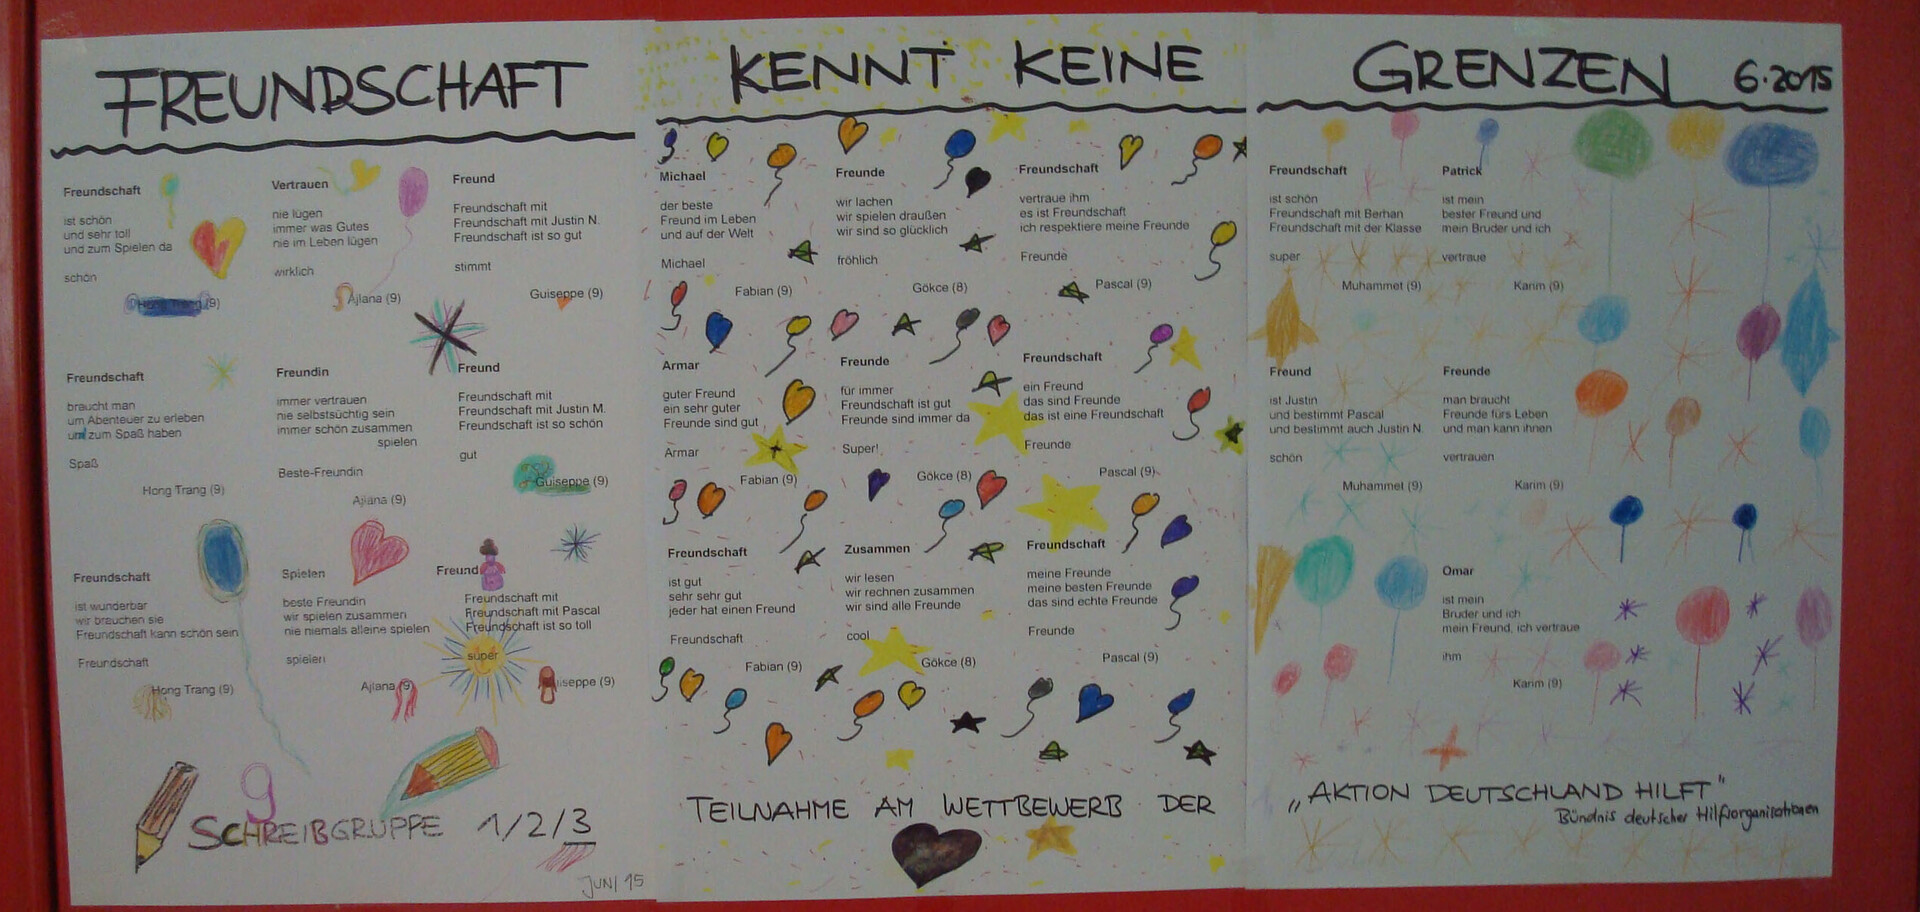 FREUNDSCHAFT
KENNT KEINE
GRENZEN 6.2015
Freundschaft
ist schön
und sehr toll
und zum Spielen da
schön
Hong Trang (9)
Vertrauen
nie lügen
immer was Gutes
nie im Leben lügen
wirklich
Ajlana (9)
Freund
Freundschaft mit
Freundschaft mit Justin N.
Freundschaft ist so gut
stimmt
Guiseppe (9)
Freundschaft
braucht man
um Abenteuer zu erleben
und zum Spaß haben
Spaß
Hong Trang (9)
Freundin
immer vertrauen
nie selbstsüchtig sein
immer schön zusammen
spielen
Beste-Freundin
Ajlana (9)
Freund
Freundschaft mit
Freundschaft mit Justin M.
Freundschaft ist so schön
gut
Guiseppe (9)
Freundschaft
ist wunderbar
wir brauchen sie
Freundschaft kann schön sein
Freundschaft
Hong Trang (9)
Spielen
beste Freundin
wir spielen zusammen
nie niemals alleine spielen
spielen
Ajlana (9)
Freund
Freundschaft mit
Freundschaft mit Pascal
Freundschaft ist so toll
super
Guiseppe (9)
9
SCHREIBGRUPPE 1/2/3
JUNI 15
Michael
der beste
Freund im Leben
und auf der Welt
Michael
Fabian (9)
Freunde
wir lachen
wir spielen draußen
wir sind so glücklich
fröhlich
Gökce (8)
Freundschaft
vertraue ihm
es ist Freundschaft
ich respektiere meine Freunde
Freunde
Pascal (9)
Armar
guter Freund
ein sehr guter
Freunde sind gut
Armar
Fabian (9)
Freunde
für immer
Freundschaft ist gut
Freunde sind immer da
Super!
Gökce (8)
Freundschaft
ein Freund
das sind Freunde
das ist eine Freundschaft
Freunde
Pascal (9)
Freundschaft
ist gut
sehr sehr gut
jeder hat einen Freund
Freundschaft
Fabian (9)
Zusammen
wir lesen
wir rechnen zusammen
wir sind alle Freunde
cool
Gökce (8)
Freundschaft
meine Freunde
meine besten Freunde
das sind echte Freunde
Freunde
Pascal (9)
TEILNAHME AM WETTBEWERB DER
Freundschaft
ist schön
Freundschaft mit Berhan
Freundschaft mit der Klasse
super
Muhammet (9)
Patrick
ist mein
bester Freund und
mein Bruder und ich
vertraue
Karim (9)
Freund
ist Justin
und bestimmt Pascal
und bestimmt auch Justin N.
schön
Muhammet (9)
Freunde
man braucht
Freunde fürs Leben
und man kann ihnen
vertrauen
Karim (9)
Omar
ist mein
Bruder und ich
mein Freund, ich vertraue
ihm
Karim (9)
„AKTION DEUTSCHLAND HILFT"
Bündnis deutscher Hilfsorganisationen